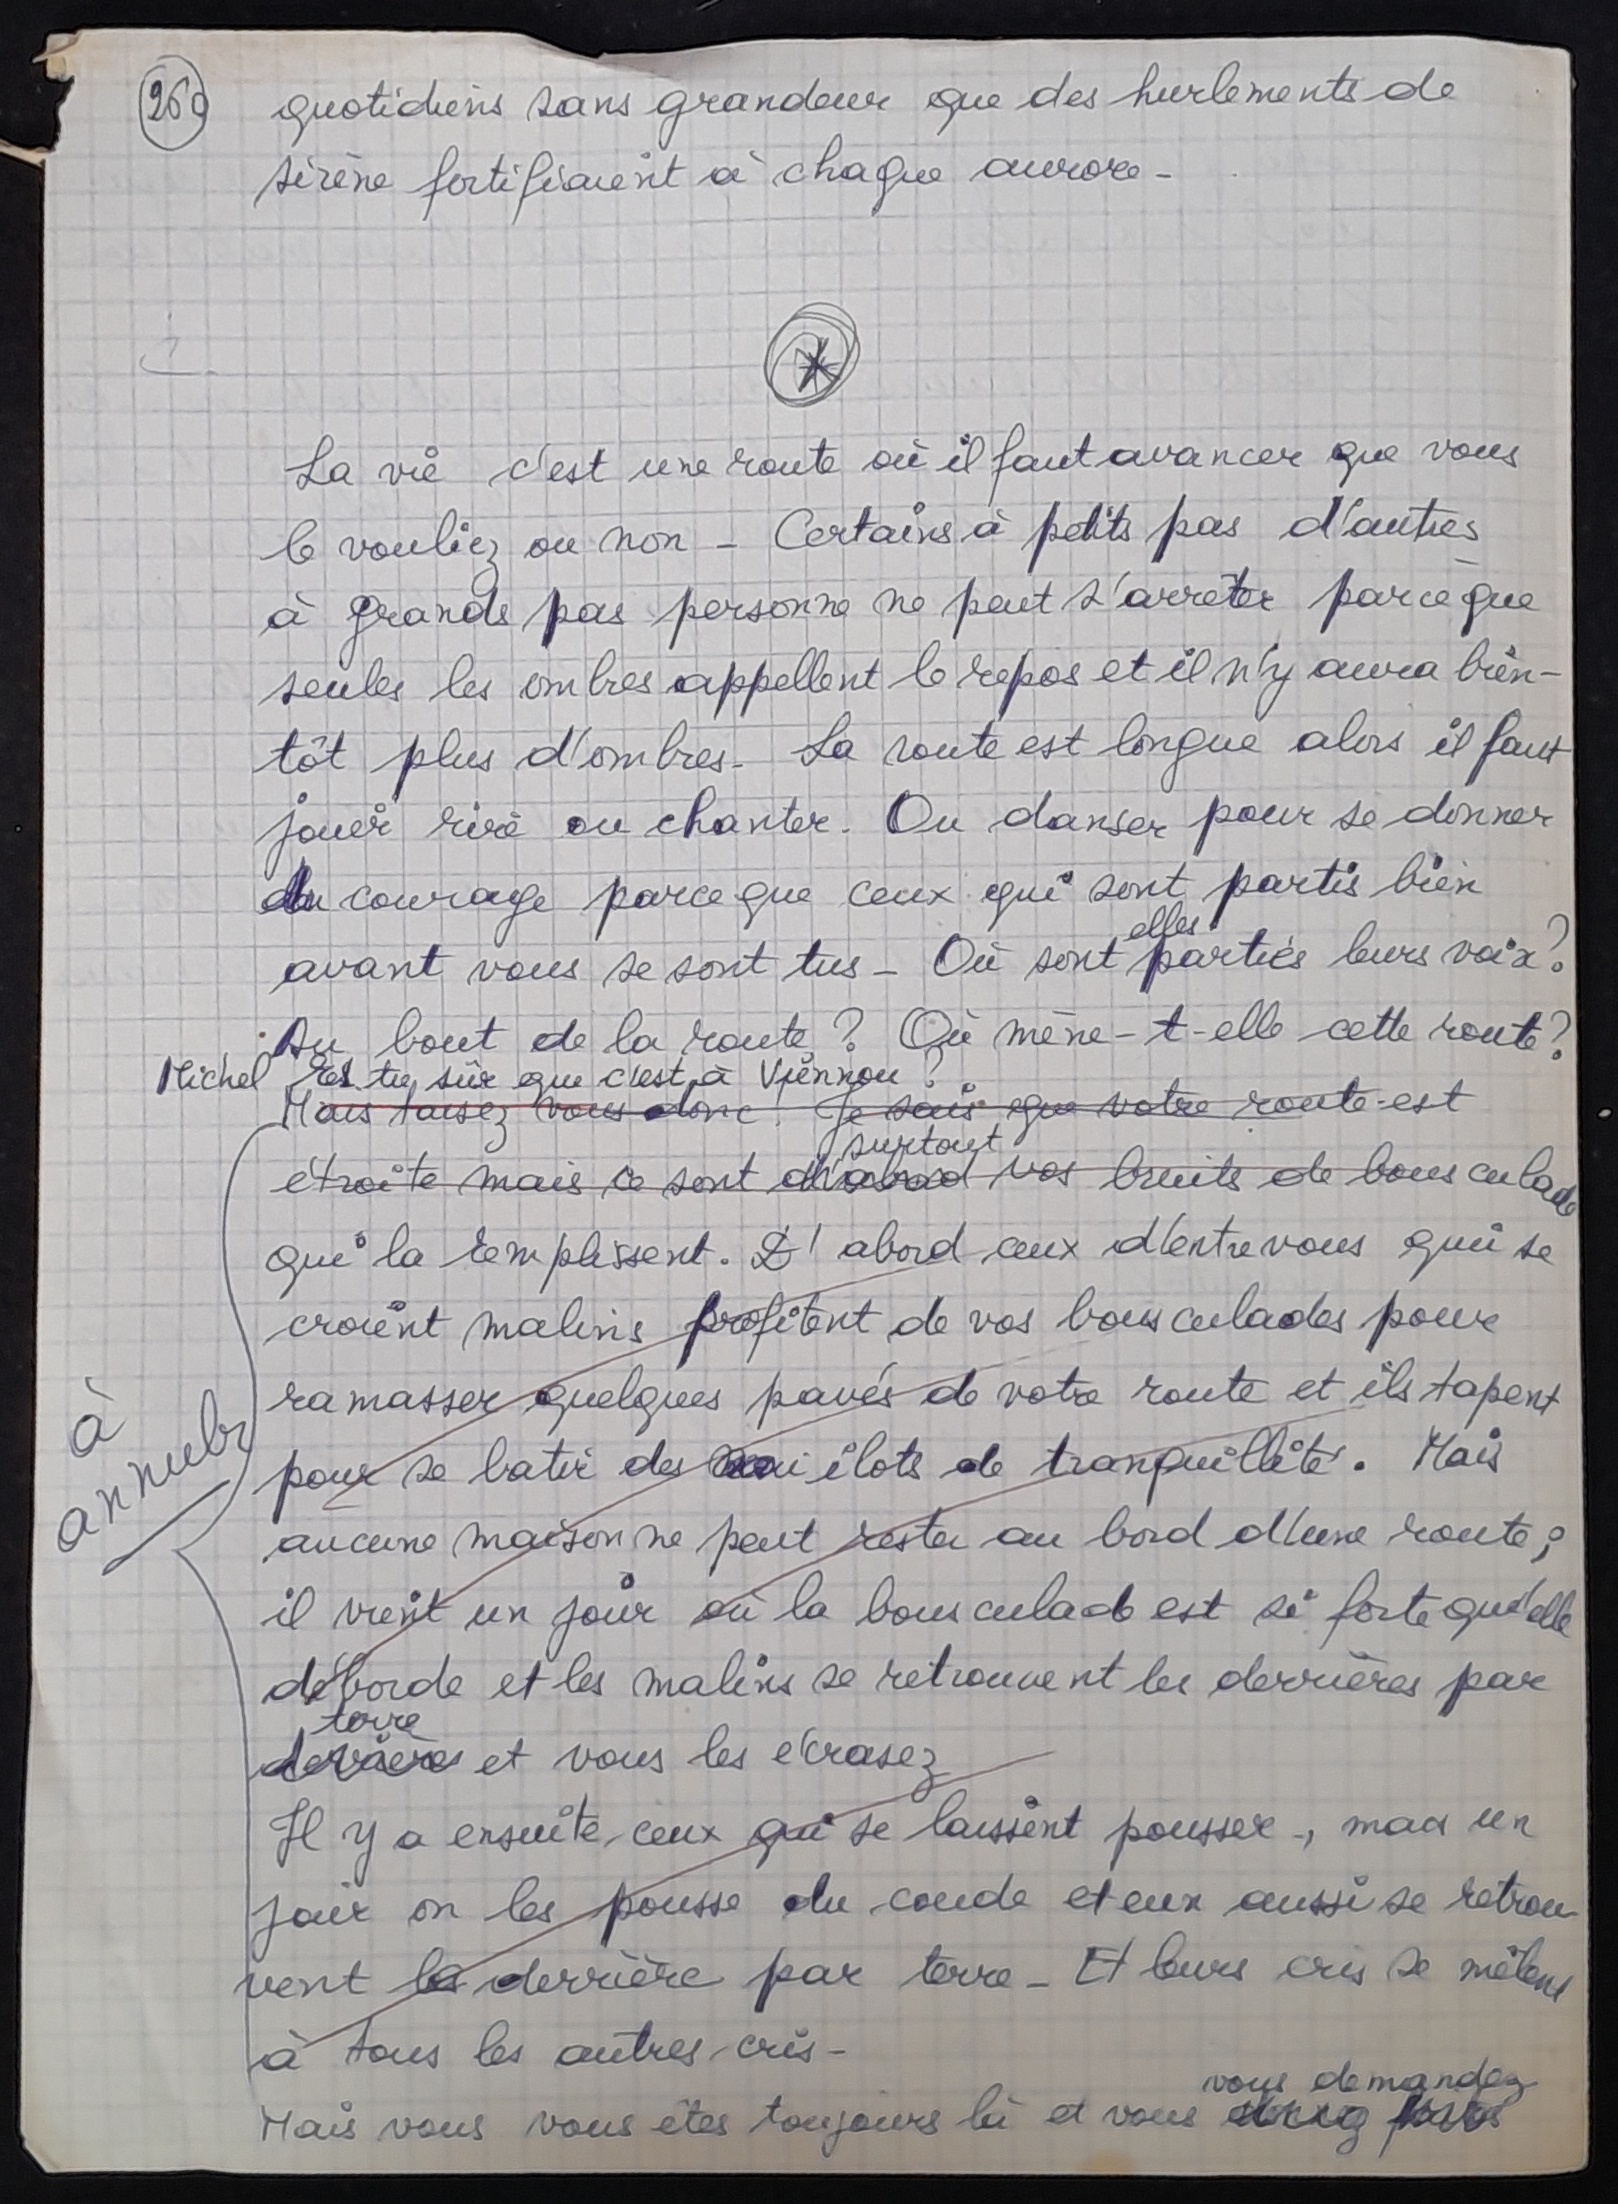 260
quotidiens sans grandeur que des hurlements de
sirène fortifiaient à chaque aurore -
*
La vie c'est une route où il faut avancer que vous
le vouliez ou non - Certains à petits pas d'autres
à grands pas personne ne peut s'arrêter parce que
seules les ombres appellent le repos et il n'y aura bien-
tôt plus d'ombres - La route est longue alors il faut
jouer rire ou chanter. Ou danser pour se donner
du courage parce que ceux qui sont partis bien
elles
avant vous se sont tus - Où sont parties leurs voix ?
Au bout de la route ? Où mène-t-elle cette route ?
Michel Es tu sûr que c'est à Viennou ?
Mais taisez vous donc. Je sais que votre route est
surtout
étroite mais ce sont d'abord vos bruits de bousculade
qui la remplissent. D'abord ceux d'entre vous qui se
croient malins profitent de vos bousculades pour
ramasser quelques pavés de votre route et ils tapent
pour se batir des ilots de tranquillité. Mais
aucune maison ne peut rester au bord d'une route ;
il vient un jour où la bousculade est si forte qu'elle
déborde et les malins se retrouvent les derrières par
terre
derrières et vous les écrasez
Il y a ensuite ceux qui se laissent pousser -, mais un
jour on les pousse du coude et eux aussi se retrou-
vent le derrière par terre - Et leurs cris se mêlent
à tous les autres cris -
vous demandez
Mais vous vous êtes toujours là et vous
à
annuler